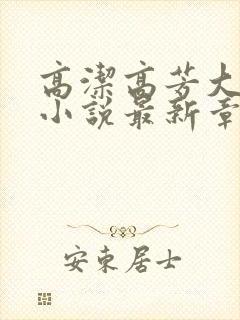 高潔高芳大
小説最新章
安東居士